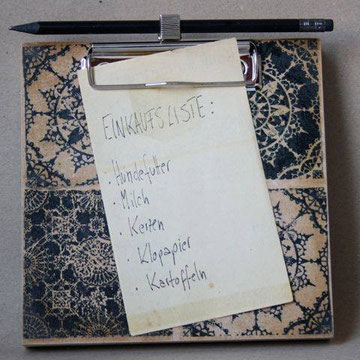 EINKAUFSLISTE:
· Hundefutter
· Milch
· Kerzen
· Klopapier
· Kartoffeln